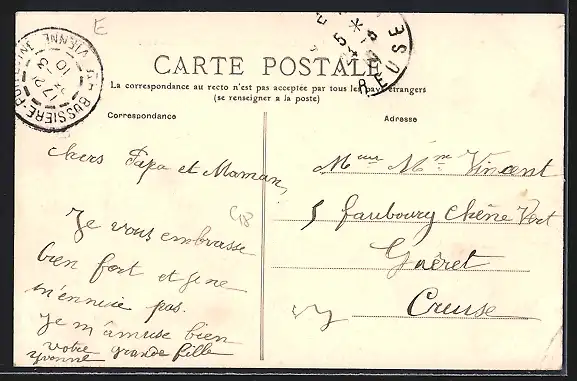 E
CARTE POSTALE
La correspondance au recto n'est pas acceptée par tous les pays étrangers
(se renseigner a la poste)
Correspondance
Adresse
BUSSIÈRE-POITEVINE
HTE VIENNE
17 2
10 -3
CREUSE
chers Papa et Maman,
Je vous embrasse
bien fort et je ne
m'ennuie pas.
Je m'amuse bien
votre grande fille
Yvonne
C18
Mme Vincent
5 faubourg Chêne Vert
Guéret
Creuse